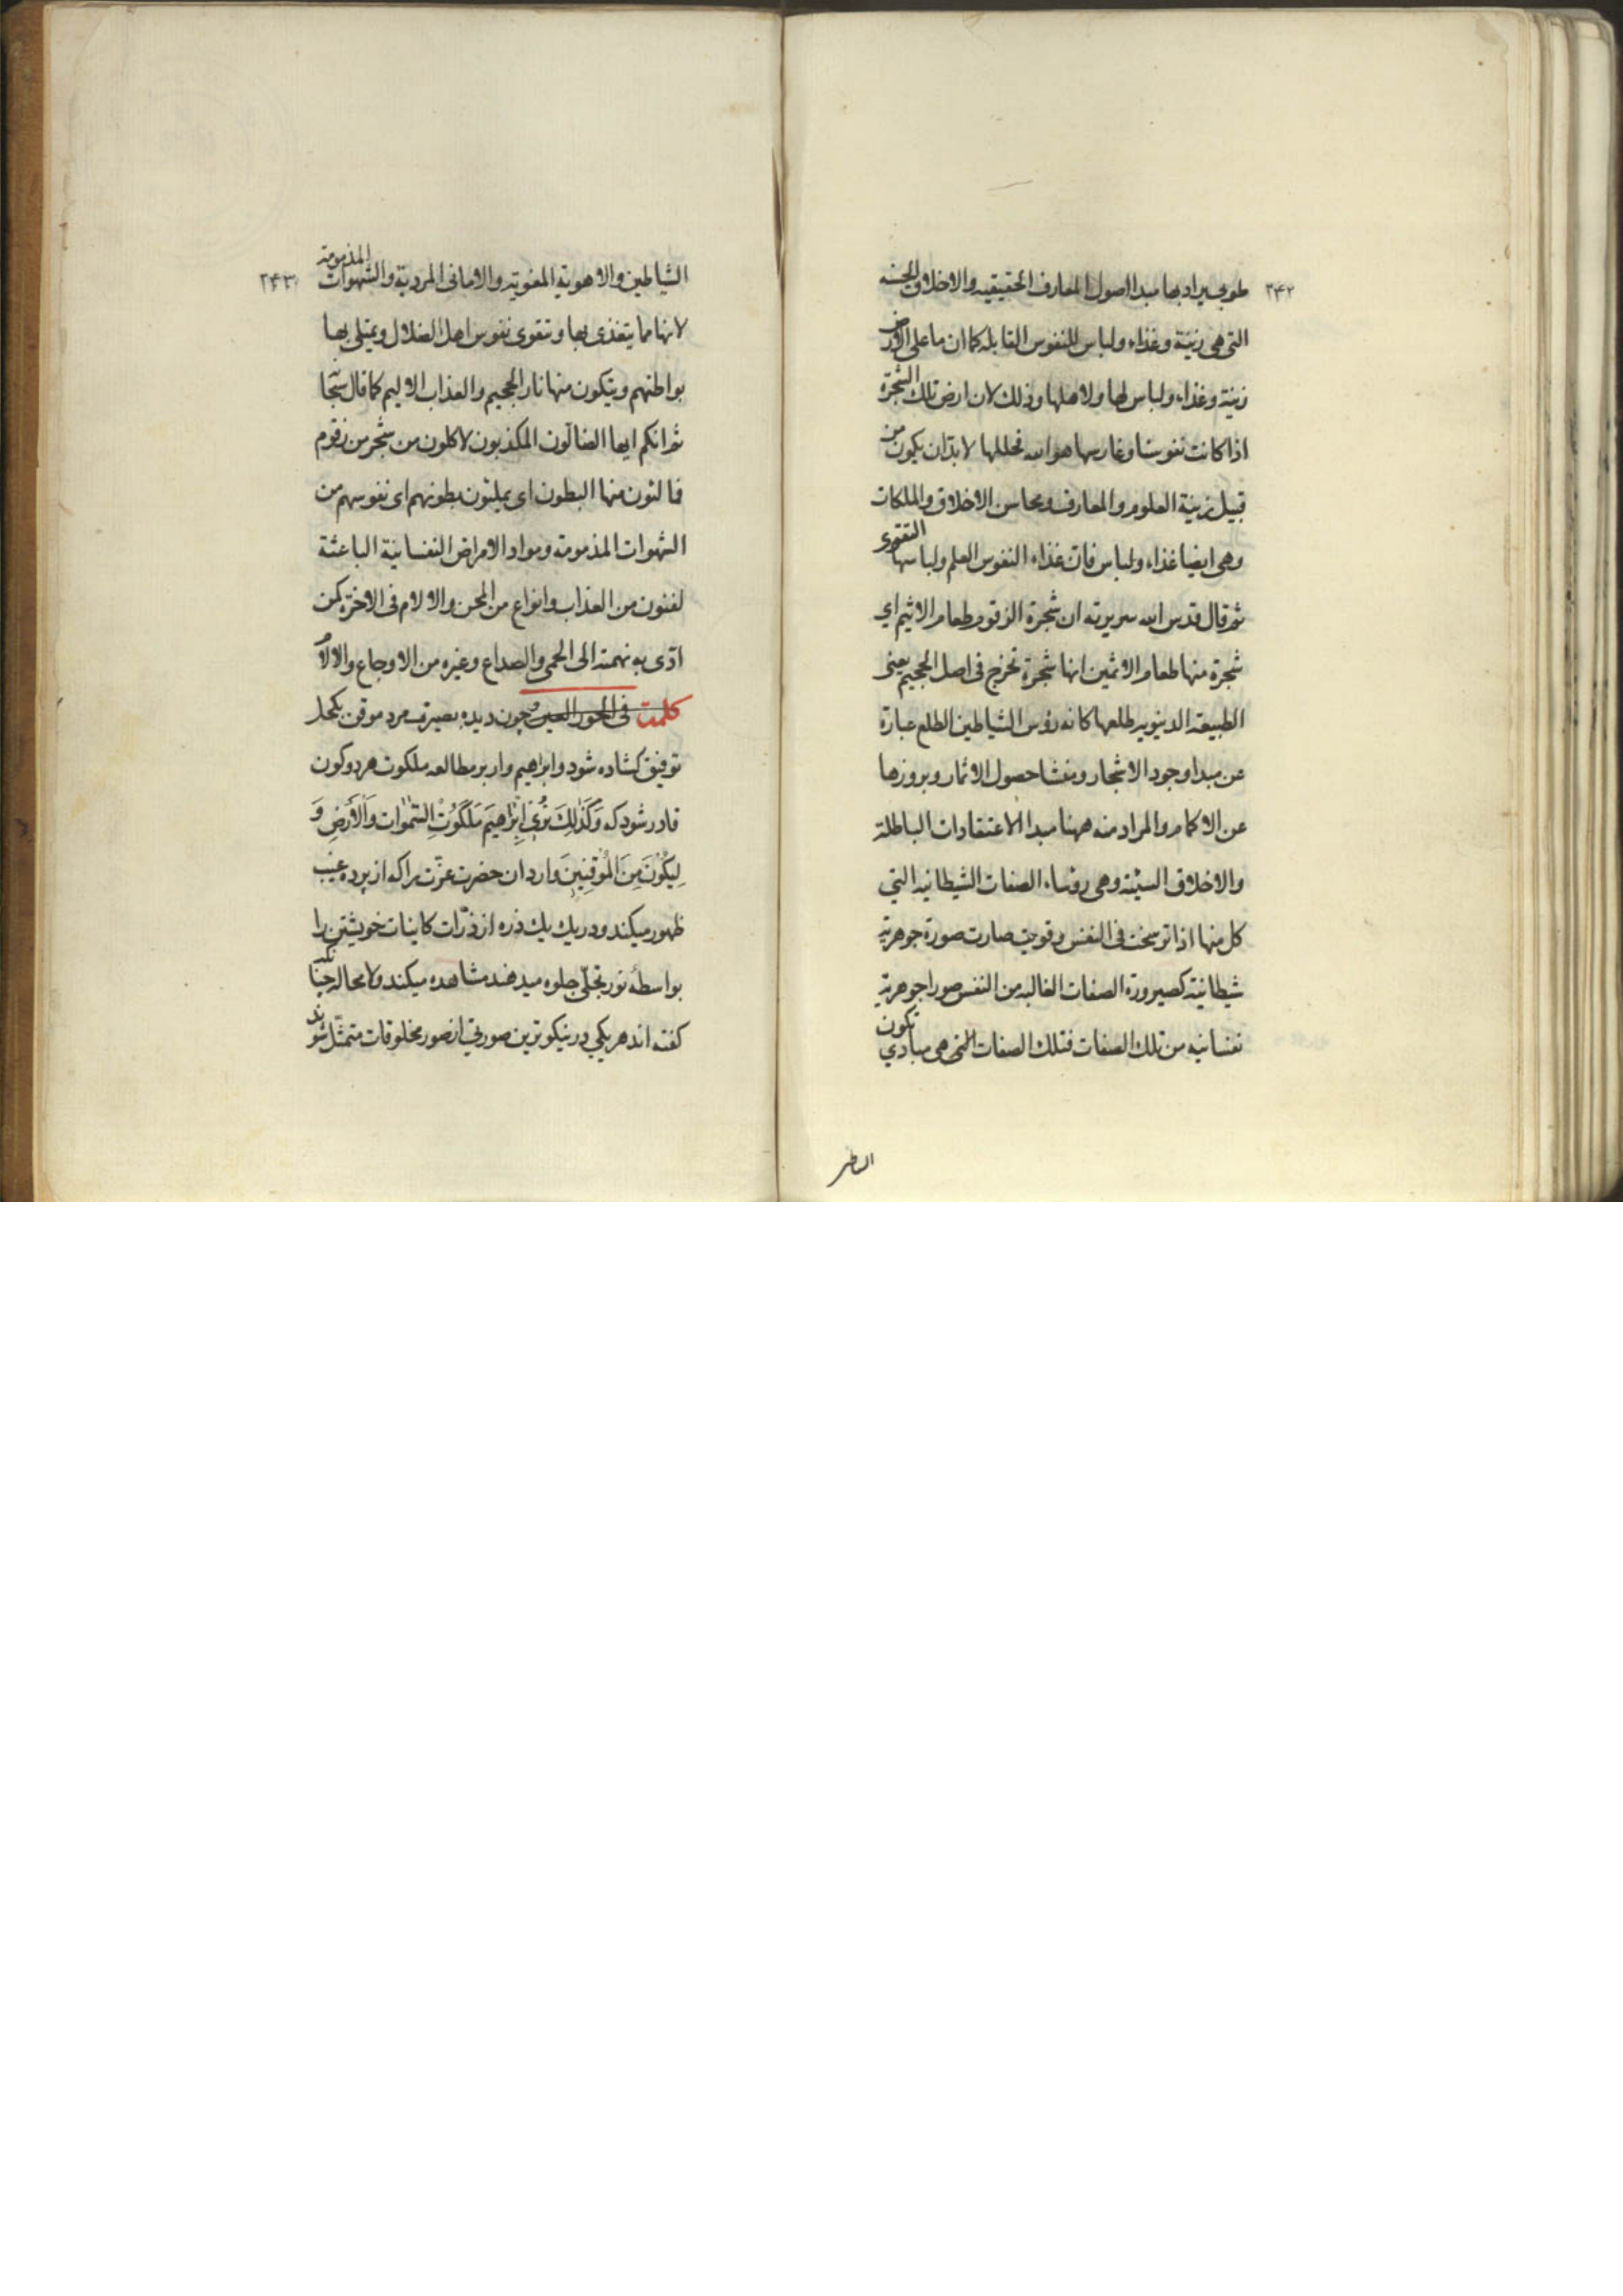 ۲۴۲
طوبی یراد بها مبدا اصول المعارف الحقیقیه والاخلاق الحسنه
التی هی زینة وغذاء ولباس للنفوس القابله کما ان ما علی الارض
زینة وغذاء ولباس لها ولاهلها وذلك لان ارض تلك الشجرة
اذا کانت نفوسنا وغارسها هو الله فحللها لا بدّ ان یکون من
قبیل زینة العلوم والمعارف ومحاسن الاخلاق والملکات
وهی ایضا غذاء ولباس فان غذاء النفوس العلم ولباسها التقوی
ثم قال قدس الله سریرته ان شجرة الزقوم طعام الاثیم ای
شجرة منها طعام الاثمین انها شجرة تخرج فی اصل الجحیم یعنی
الطبیعه الدینویه طلعها کانه رؤس الشیاطین الطلع عبارة
عن مبدا وجود الاشجار ومنشا حصول الاثمار وبروزها
عن الاکمام والمراد منه ههنا مبدا الاعتقادات الباطلة
والاخلاق السیئه وهی رؤساء الصفات الشیطانیه التی
کل منها اذا ترسخت فی النفس وقویت صارت صورة جوهریة
شیطانیة کصیرورة الصفات الغالبه من النفس صورا جوهریة
نفسانیه من تلك الصفات فتلك الصفات التی هی مبادی تکون
۲۴۳
الشیاطین والاهویة المغویة والامانی المردیة والشهوات المذمومة
لانها مما یتغذی بها وتتقوی نفوس اهل الضلال ویمتلی بها
بواطنهم ویتکون منها نار الجحیم والعذاب الالیم کما قال سبحا
ثم انکم ایها الضالّون المکذبون لاکلون من شجر من زقوم
فمالئون منها البطون ای یملئون بطونهم ای نفوسهم من
الشهوات المذمومة ومواد الامراض النفسانیة الباعثة
لفنون من العذاب وانواع من المحن والالام فی الاخرة کمن
ادّی به نهمته الی الحمی والصداع وغیره من الاوجاع والالام
کلمة فی الحور العین چون دیده بصیرت مرد موقن بکحل
توفیق کشاده شود وابراهیم وار بر مطالعه ملکوت هر دو کون
قادر شود که وَكَذٰلِكَ نُرِي اِبْرٰاهِيمَ مَلَكُوتَ السَّمٰوٰات وَالْأَرْضِ وَ
لِيَكُونَ مِنَ الْمُوقِنِينَ واردان حضرت عزّت را که از پرده غیب
ظهور میکند ودر یك یك ذره از ذرّات کاینات خویشتن را
بواسطهٔ نور تجلّی جلوه میدهند مشاهده میکند ولا محاله چنانکه
کفته اند هر یکی در نیکوترین صورتی از صور مخلوقات متمثّل شوند